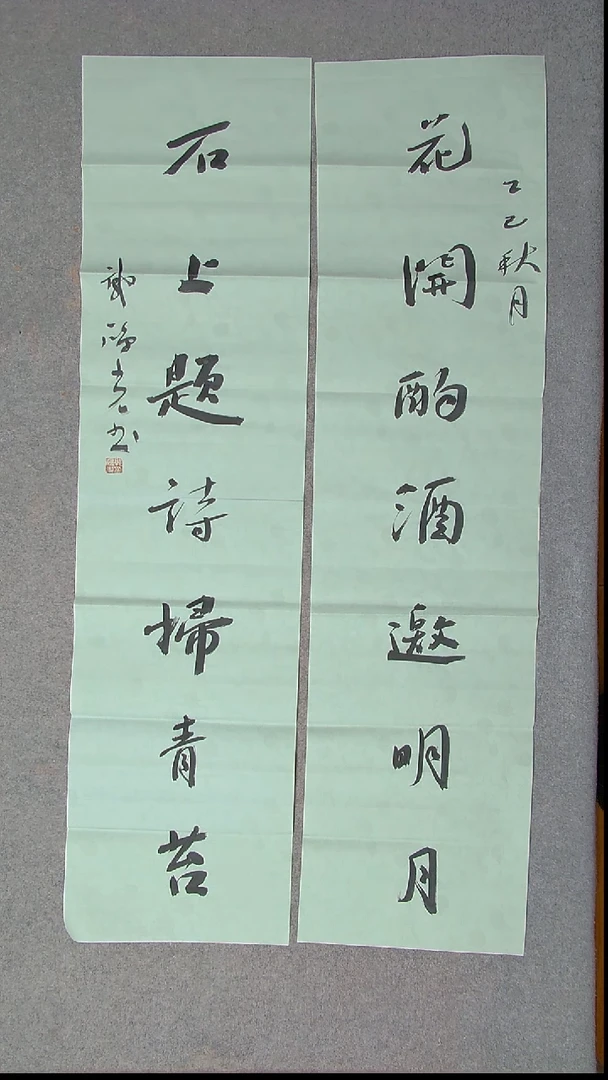 乙巳秋月
花開酌酒邀明月
石上題詩掃青苔
書